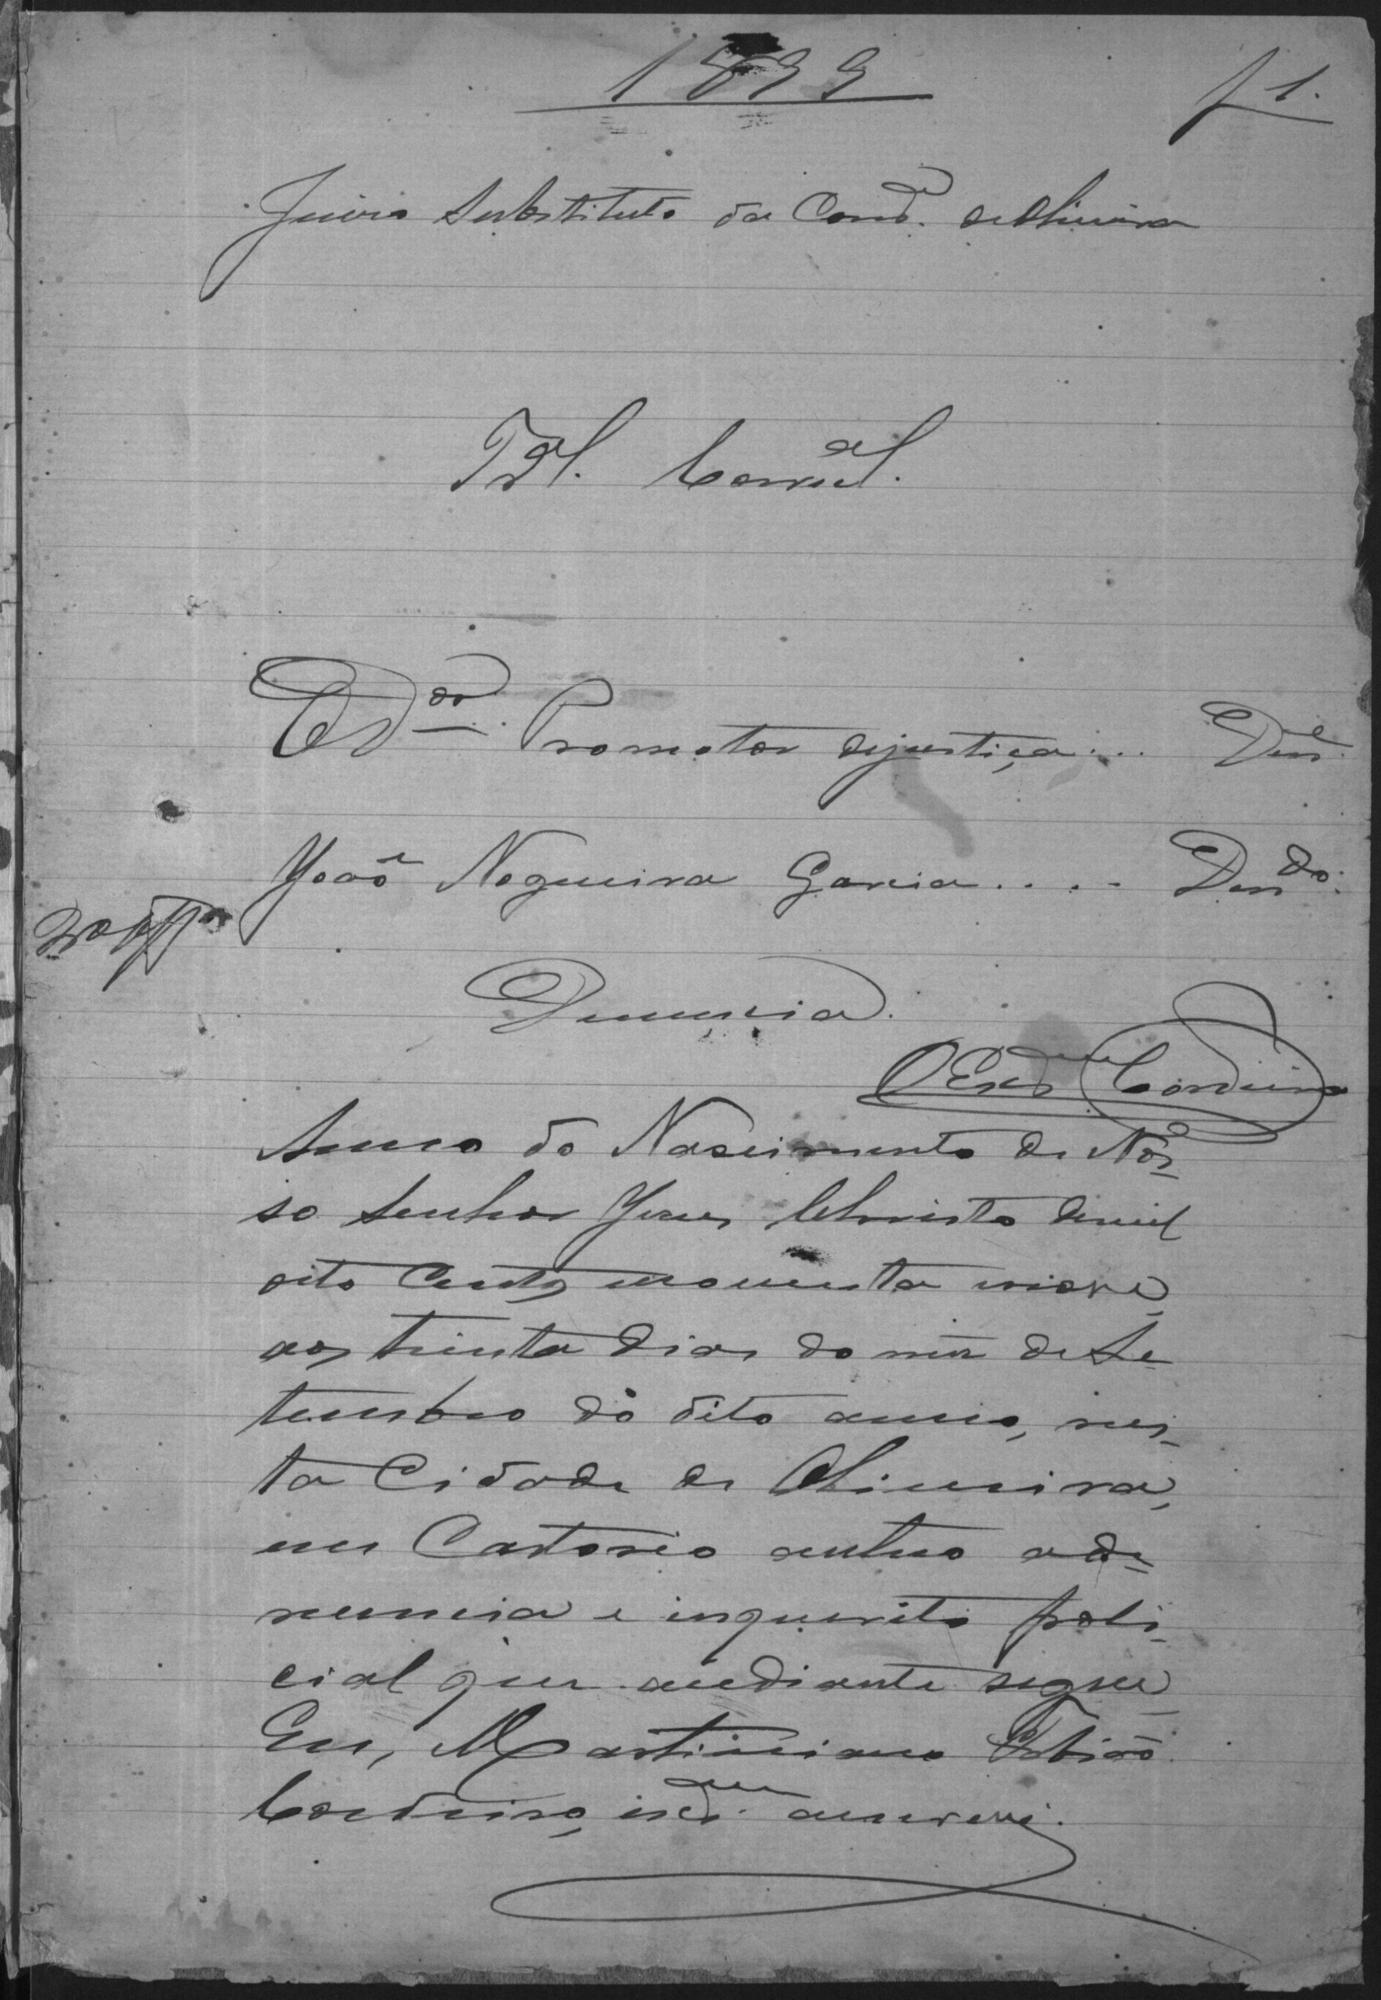 1899 f 1.
Juizo Substituto da Com.ca de Oliveira
Tbal. Correcal.
O Dor. Promotor dejustiça... Den.e
João Nogueira Garcia.... Dendo.
Denuncia.
O Escam Cordeiro
Anno do Nascimento de Nos-
so Senhor Jesus Christo demil
oito Centos noventa enove,
aos trinta dias do mez de Se-
tembro do dito anno, nes-
ta Cidade de Oliveira,
em Cartorio autuo a de-
nuncia e inquerito poli-
cial que aediante segue
Eu, Martiniano
Cordeiro, escam. escrevi.